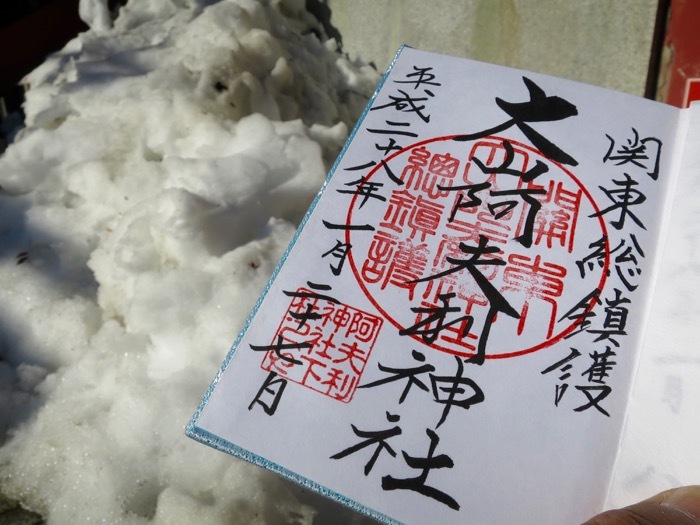 関東総鎮護
大山阿夫利神社
平成二十八年一月二十七日
關東
總鎮護
阿夫利
神社下
社之印